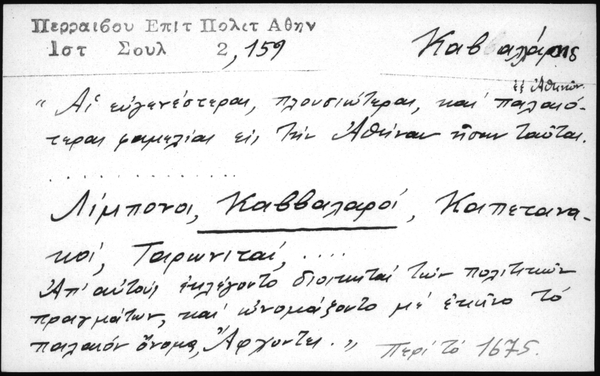 Περραιβου Επιτ Πολιτ Αθην
1στ Σουλ 2,159
Καββαλάρης
ἐξ Ἀθηνῶν.
"Αἱ εὐγενέστεραι, πλουσιώτεραι, καὶ παλαιό-
τεραι φαμελίαι εἰς τὴν Ἀθήναν ἦσαν ταῦται.
. . . . . . . . . . . . .
Λίμπονοι, Καββαλαροί, Καπετανα-
κοί, Ταρωνιταί, ....
Ἀπ' αὐτοὺς ἐκλέγοντο διοικηταὶ τῶν πολιτικῶν
πραγμάτων, καὶ ὠνομάζοντο μὲ ἐκεῖνο τὸ
παλαιὸν ὄνομα, Ἄρχοντες."
Περὶ τὸ 1675.